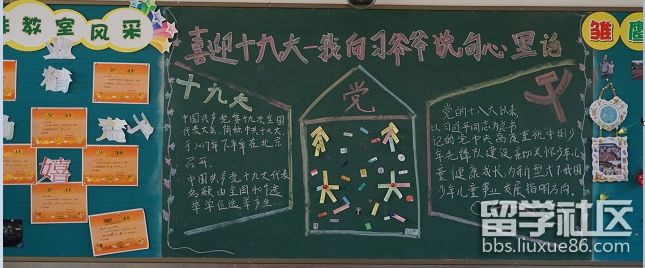 教室风采
喜迎十九大—我向习爷爷说句心里话
雏鹰
十九大
中国共产党第十九次全国
代表大会,简称中共十九大,
于2017年下半年在北京
召开。
中国共产党十九大代表
名额由全国40个选
举单位选举产生
党
党的十八大以来,
以习近平同志为总书
记的党中央高度重视中国少
年先锋队建设,亲切关怀少年儿
童健康成长,为新型式下我国
少年儿童事业发展指明方向.
留学社区
bbs.liuxue86.com